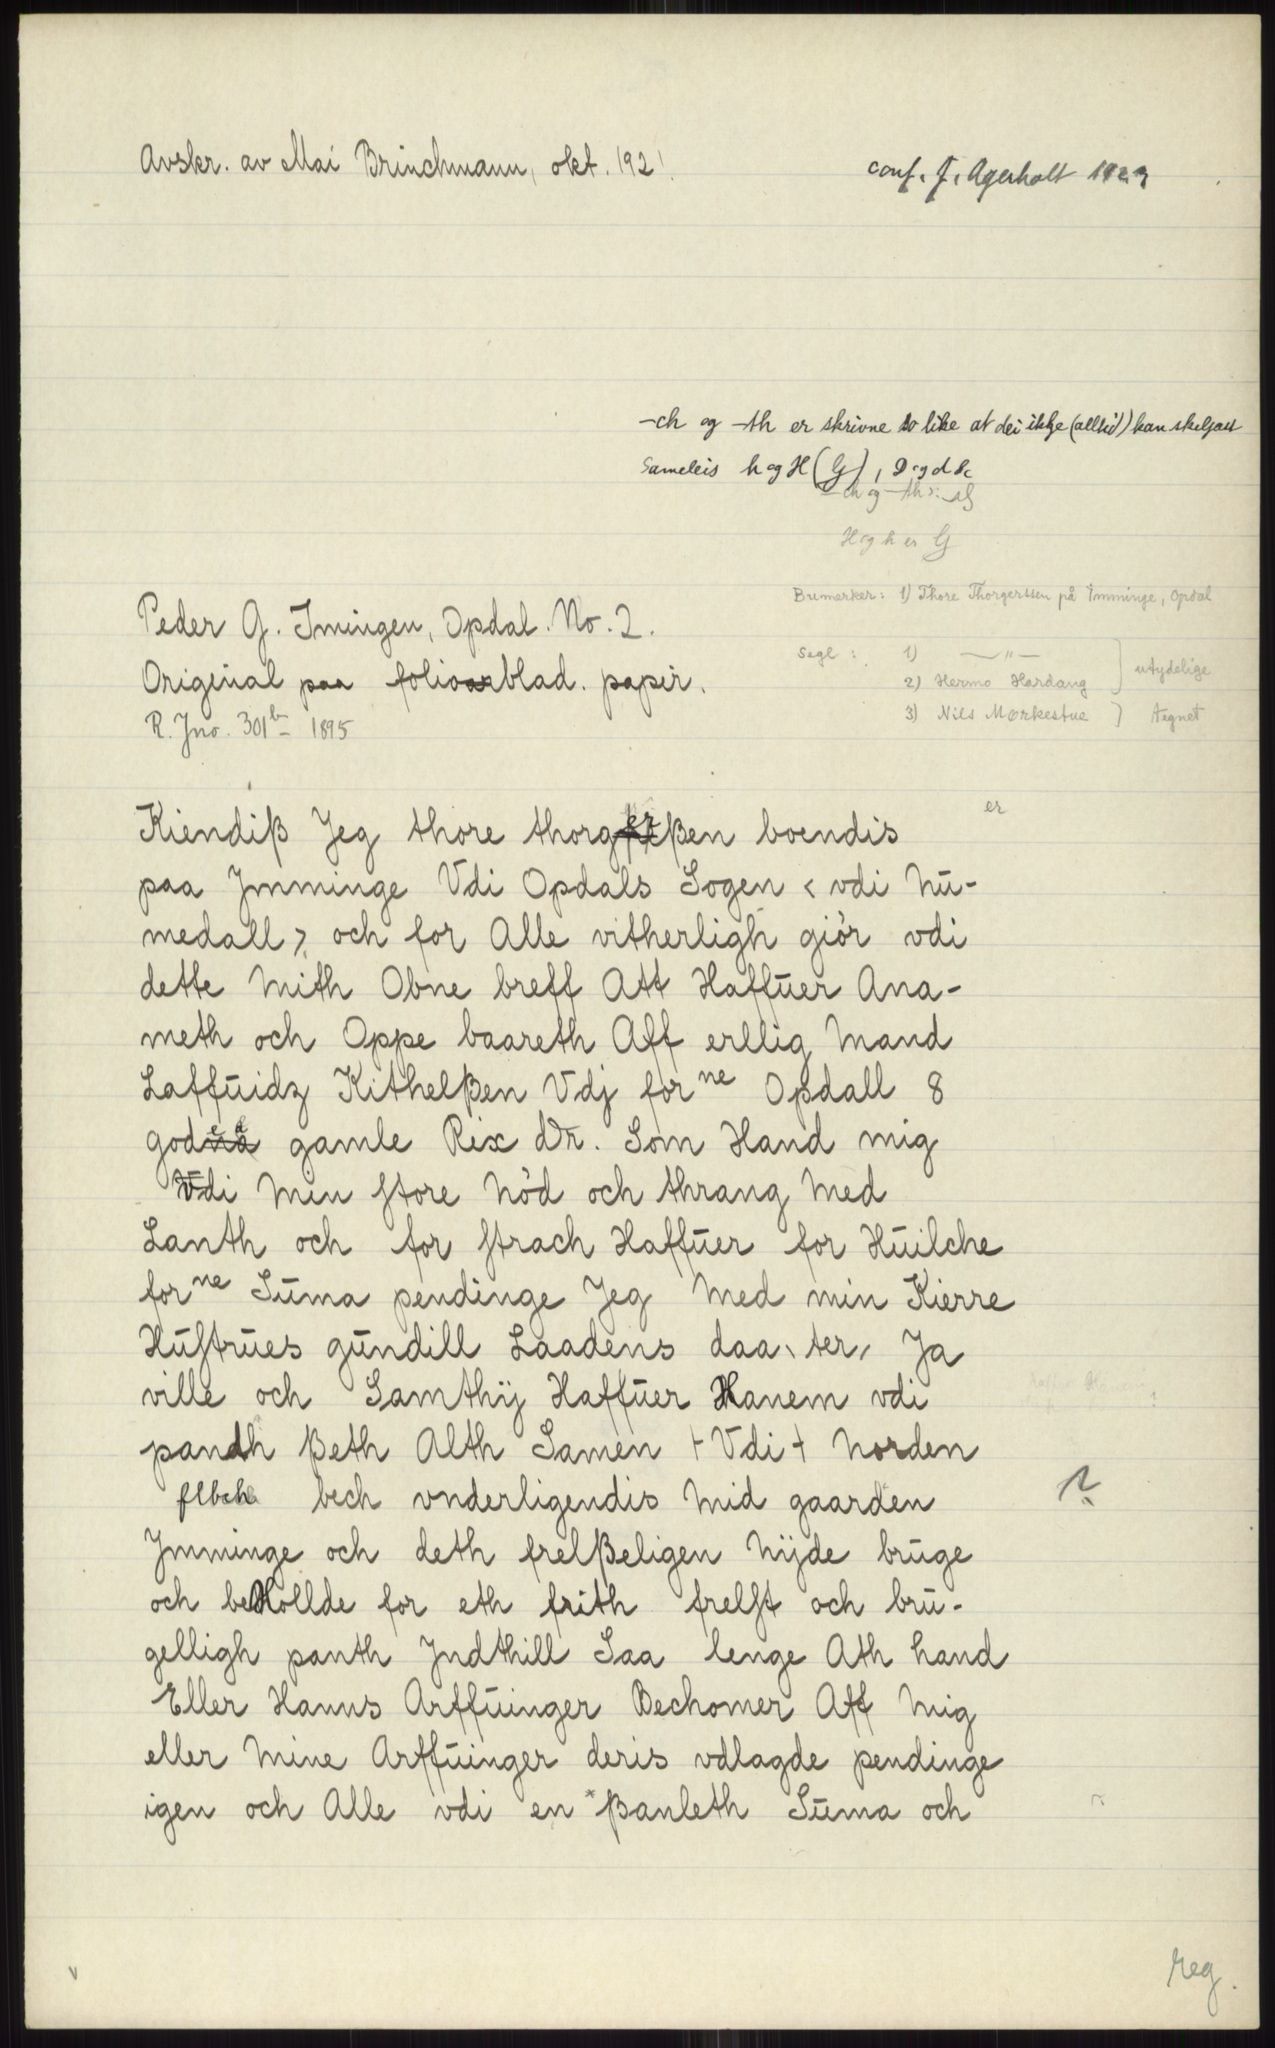 Avskr. av Mai Brinchmann, okt. 192
conf. J. Agerholt
-ch og -th er skrivne so like at dei ikkje (alltid) kan skeljast
Sameleis h og H (G), D og d &c
-ch og -th
H og h er G
Bumerker: 1) Thore Thorgerssen på Imminge, Opdal
Segl : 1) —"—
2) Hermo Hardang } utydelige
3) Nils Morkestue } tegnet
Peder G. Imingen, Opdal. No. 2.
Original paa folioarblad. papir.
R. Jno. 301b 1895
Kiendiß Jeg thore thorgerßen boendis
er
paa Jmminge Vdi Opdals Sogen < vdi Nu-
medall >, och for Alle vitherligh giör vdi
dette Mith Obne breff Att Haffuer Ana-
meth och Oppe baareth Aff erllig Mand
Laffuidz Kithelßen Vdj for ne Opdall 8
gode gamle Rix dr. Som Hand mig
Vdi Min store Nöd och thrang Med
Lanth och for strach Haffuer for Huilche
for ne Suma pendinge Jeg Med min Kierre
Hustrues gundill Laadens daa ter, Ja
ville och Samthÿ Haffuer Hanem vdi
pandh ßeth Alth Samen + Vdi + Norden
bech vnderligendis Mid gaarden
?
Jmminge och deth frelßeligen Nÿde bruge
och beHollde for eth frith frelst och bru-
gelligh panth Jndthill Saa lenge Ath hand
Eller Hanns Arffuinger Bechomer Aff Mig
eller Mine Arffuinger deris vdlagde pendinge
igen och Alle vdi en *ßanleth Suma och
reg.